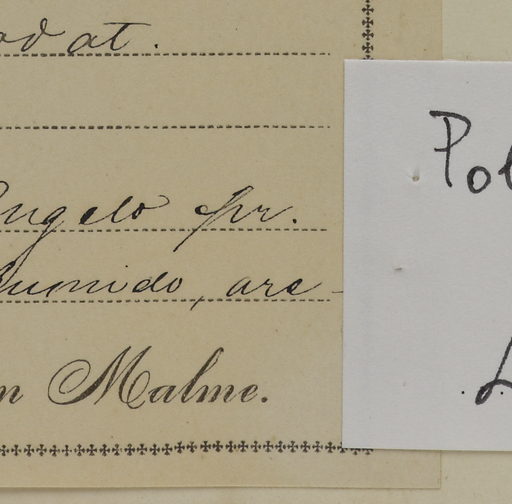 od at.
Angelo pr.
humido, are-
n Malme.
Pol
L